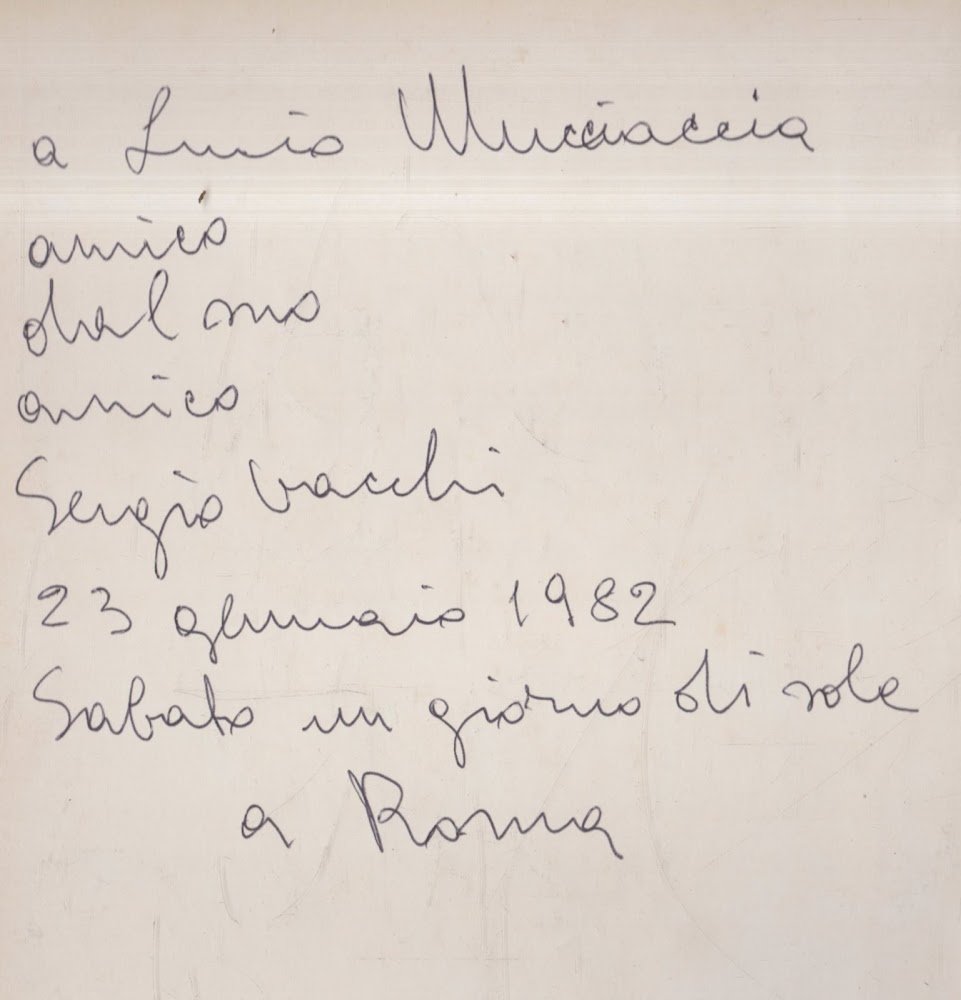 a Lucio Mucciaccia
amico
dal suo
amico
Sergio Vacchi
23 gennaio 1982
Sabato un giorno di sole
a Roma